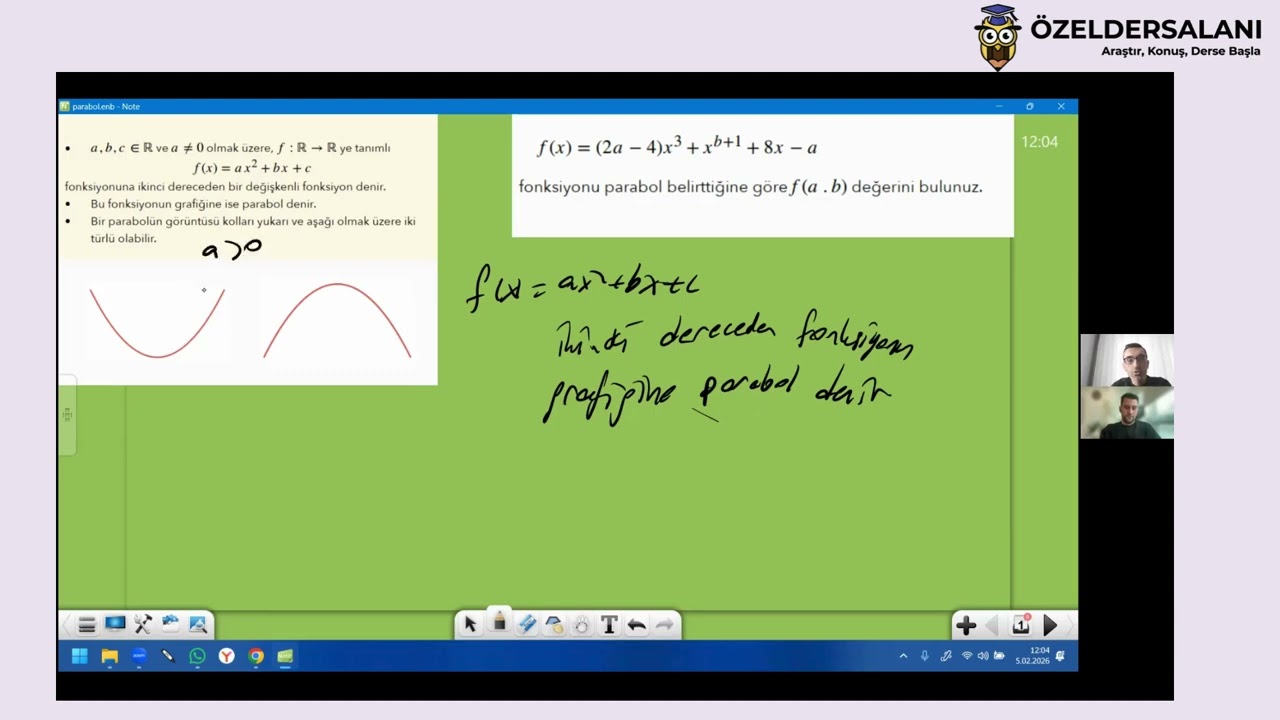 ÖZELDERSALANI
Araştır, Konuş, Derse Başla
parabol.enb - Note
• a, b, c ∈ ℝ ve a ≠ 0 olmak üzere, f : ℝ → ℝ ye tanımlı
f(x) = ax² + bx + c
fonksiyonuna ikinci dereceden bir değişkenli fonksiyon denir.
• Bu fonksiyonun grafiğine ise parabol denir.
• Bir parabolün görüntüsü kolları yukarı ve aşağı olmak üzere iki
türlü olabilir.
a>0
f(x) = (2a − 4)x³ + x^{b+1} + 8x − a
fonksiyonu parabol belirttiğine göre f(a . b) değerini bulunuz.
12:04
f(x) = ax²+bx+c
ikinci dereceden fonksiyon
grafiğine parabol denir
T
1
12:04
5.02.2026